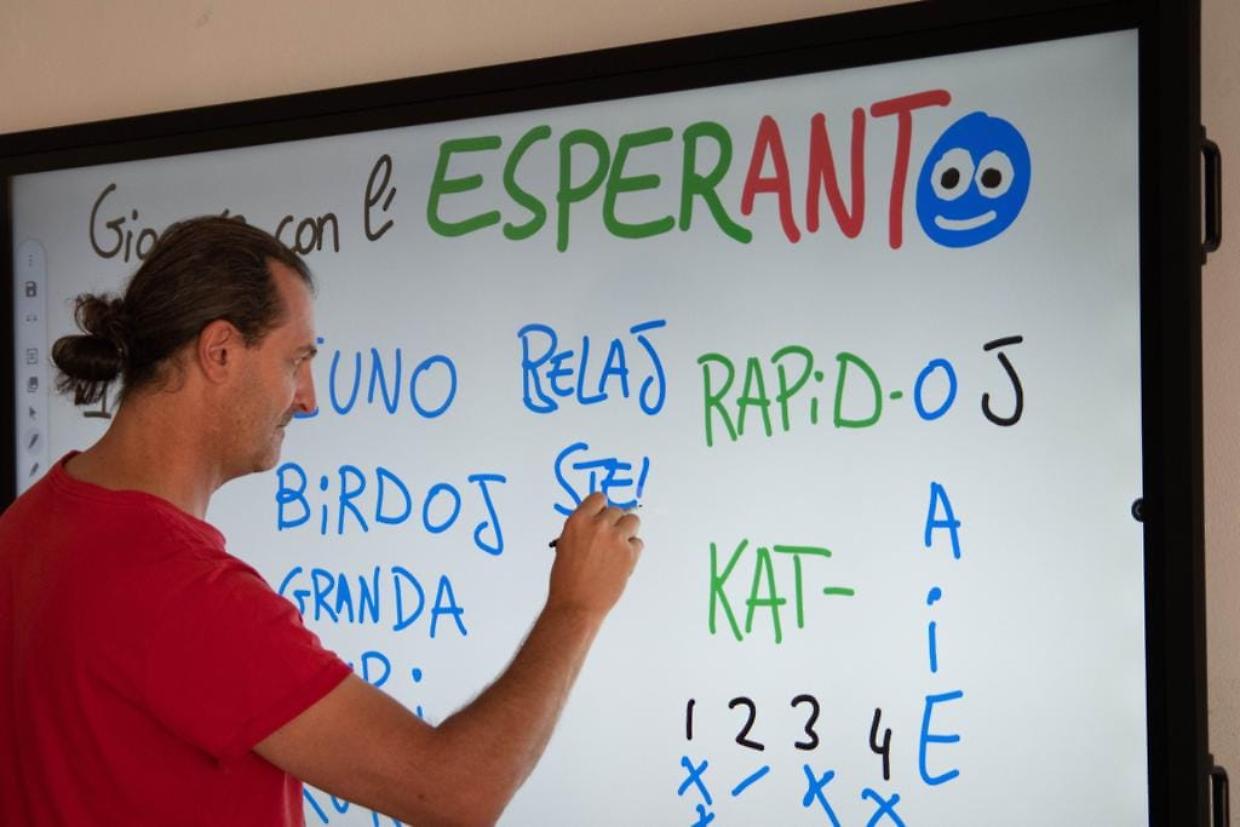 con l' ESPERANTO
UNO RELAJ RAPiD-O J
BiRDOJ STE! A
GRANDA KAT- i
1 2 3 4 E
X / X X